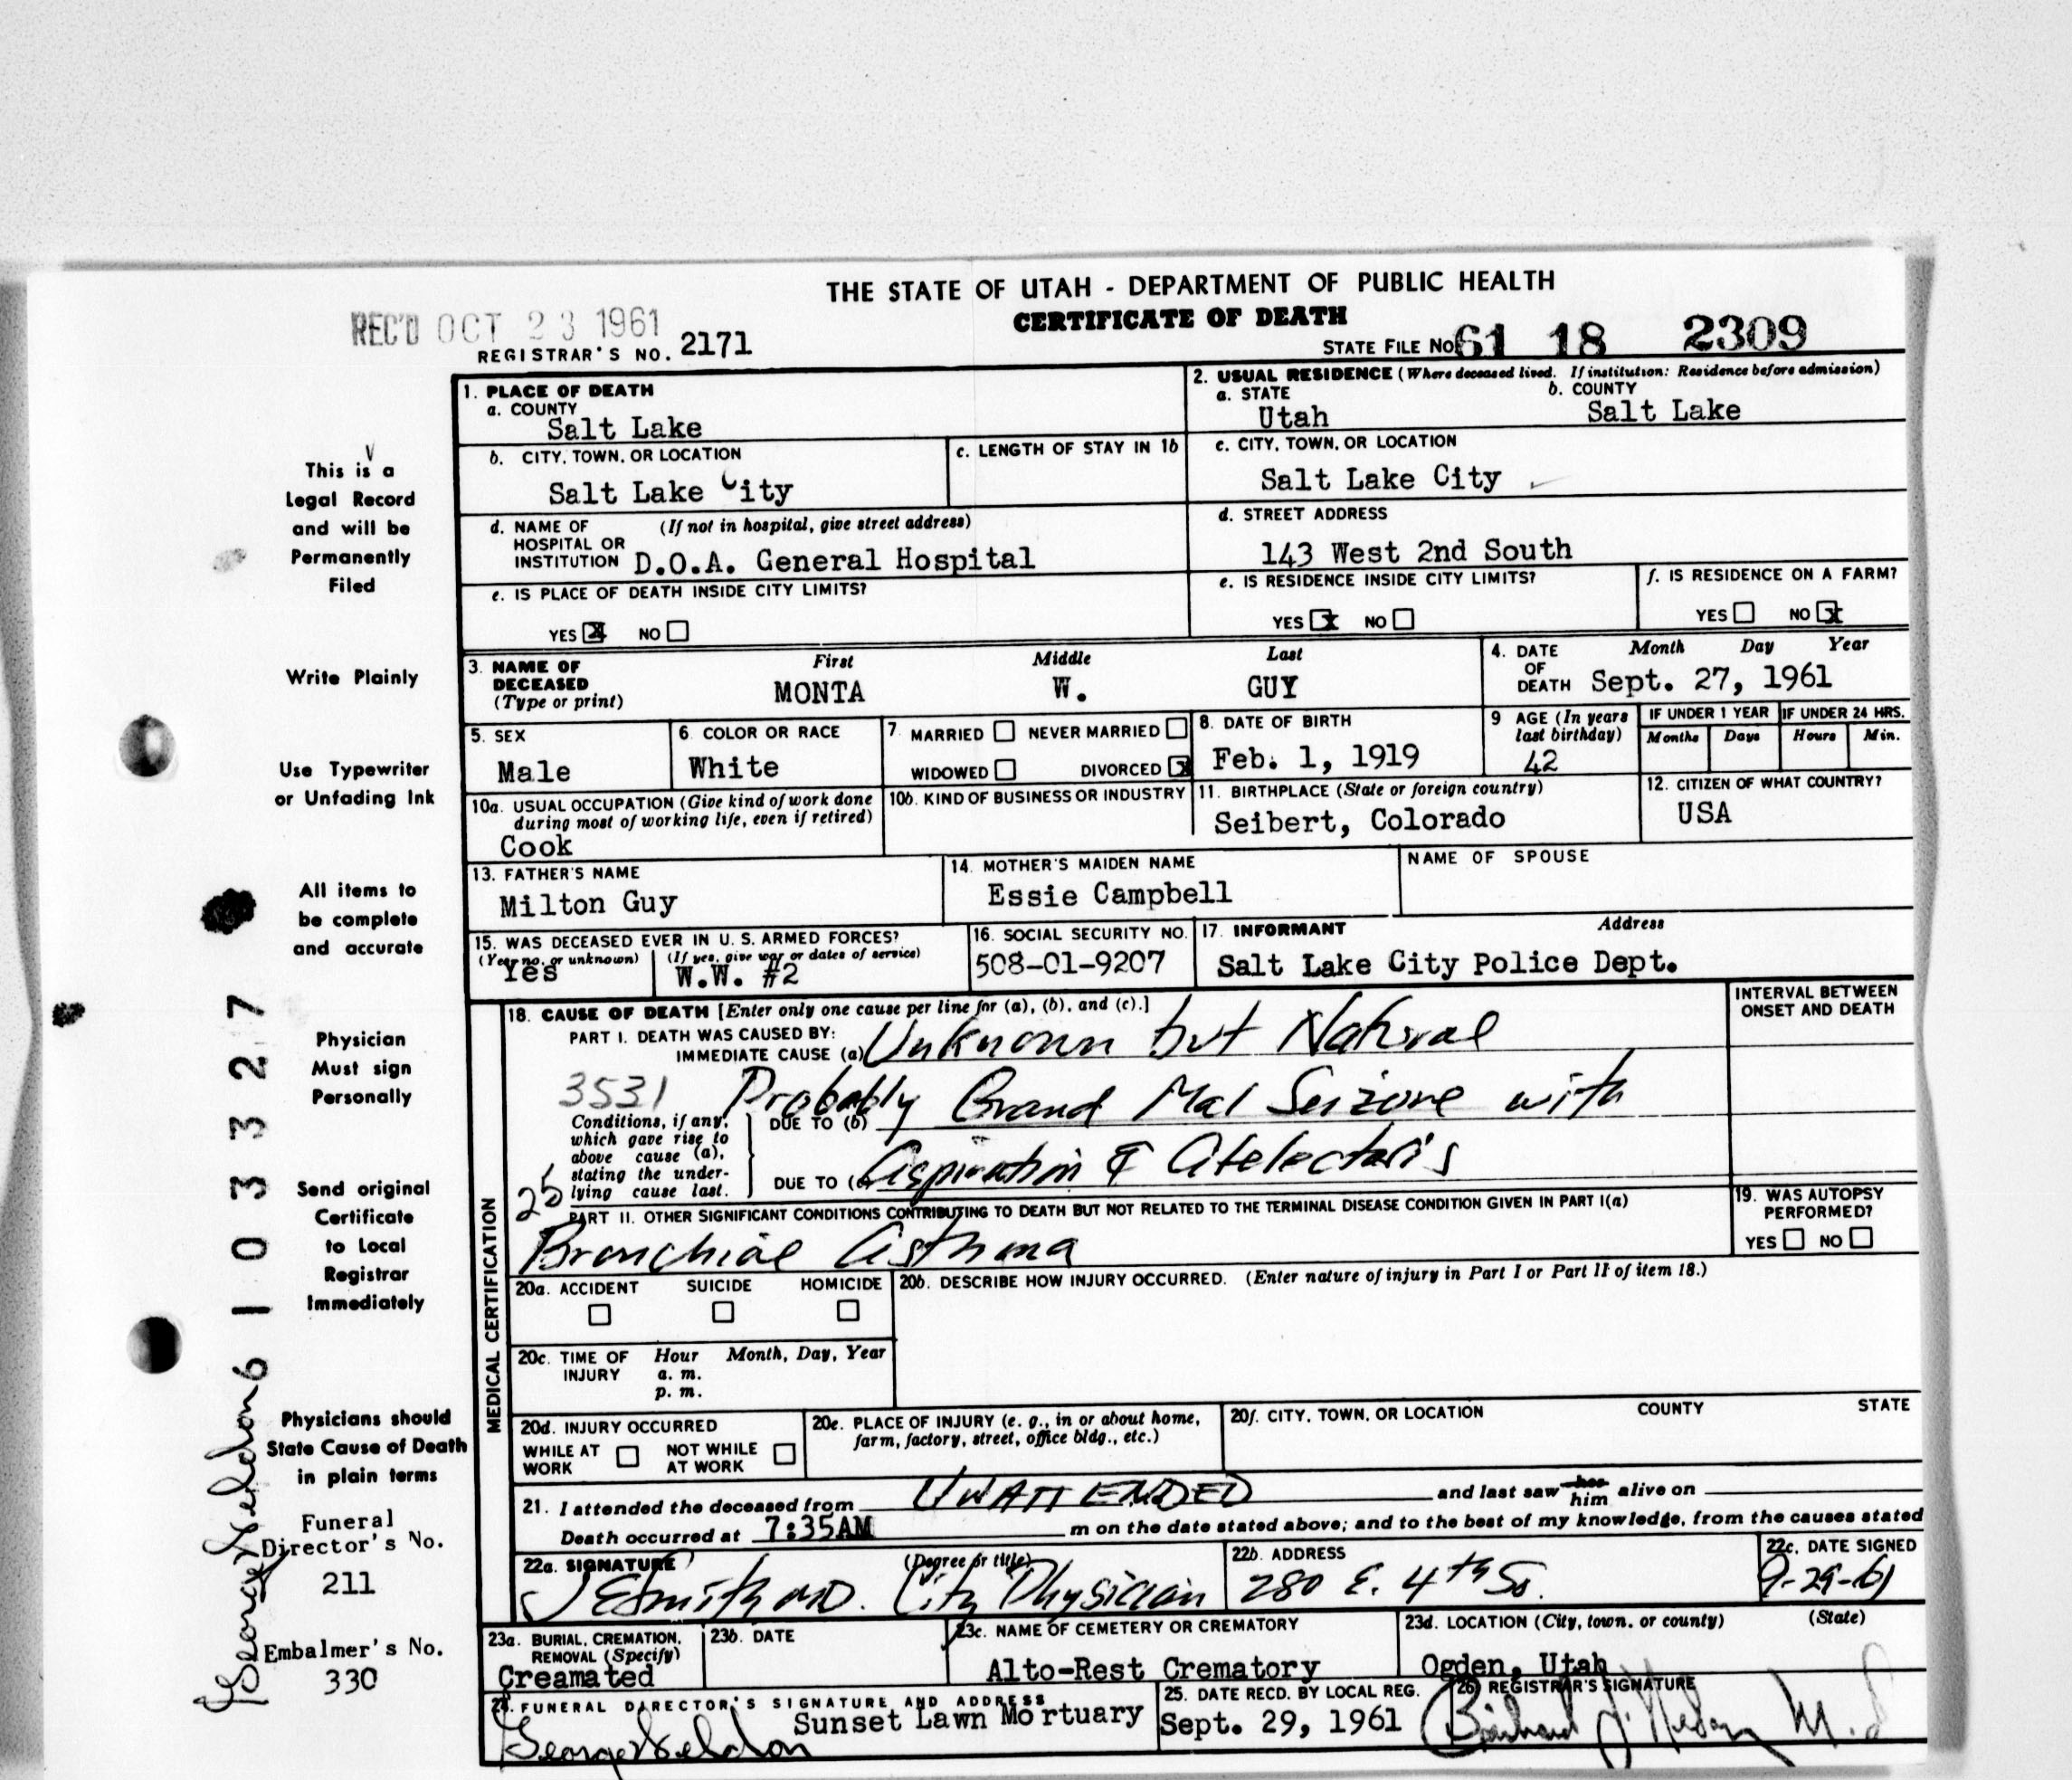 THE STATE OF UTAH - DEPARTMENT OF PUBLIC HEALTH
CERTIFICATE OF DEATH
REC'D OCT 23 1961
REGISTRAR'S NO. 2171
STATE FILE NO. 61 18 2309
1. PLACE OF DEATH
a. COUNTY
Salt Lake
2. USUAL RESIDENCE (Where deceased lived. If institution: Residence before admission)
a. STATE b. COUNTY
Utah Salt Lake
b. CITY, TOWN, OR LOCATION
Salt Lake City
c. LENGTH OF STAY IN 1b
c. CITY, TOWN, OR LOCATION
Salt Lake City
d. NAME OF (If not in hospital, give street address)
HOSPITAL OR
INSTITUTION D.O.A. General Hospital
d. STREET ADDRESS
143 West 2nd South
e. IS PLACE OF DEATH INSIDE CITY LIMITS?
YES x NO
e. IS RESIDENCE INSIDE CITY LIMITS?
YES x NO
f. IS RESIDENCE ON A FARM?
YES NO x
3. NAME OF DECEASED (Type or print)
First Middle Last
MONTA W. GUY
4. DATE OF DEATH Month Day Year
Sept. 27, 1961
5. SEX
Male
6. COLOR OR RACE
White
7. MARRIED NEVER MARRIED
WIDOWED DIVORCED x
8. DATE OF BIRTH
Feb. 1, 1919
9 AGE (In years last birthday)
42
IF UNDER 1 YEAR IF UNDER 24 HRS.
Months Days Hours Min.
10a. USUAL OCCUPATION (Give kind of work done
during most of working life, even if retired)
Cook
10b. KIND OF BUSINESS OR INDUSTRY
11. BIRTHPLACE (State or foreign country)
Seibert, Colorado
12. CITIZEN OF WHAT COUNTRY?
USA
13. FATHER'S NAME
Milton Guy
14. MOTHER'S MAIDEN NAME
Essie Campbell
NAME OF SPOUSE
15. WAS DECEASED EVER IN U. S. ARMED FORCES?
(Yes, no, or unknown) (If yes, give war or dates of service)
Yes W.W. #2
16. SOCIAL SECURITY NO.
508-01-9207
17. INFORMANT Address
Salt Lake City Police Dept.
18. CAUSE OF DEATH [Enter only one cause per line for (a), (b), and (c).]
INTERVAL BETWEEN
ONSET AND DEATH
PART I. DEATH WAS CAUSED BY:
IMMEDIATE CAUSE (a) Unknown but Natural
3531 Probably Grand Mal Seizure with
Conditions, if any,
which gave rise to
above cause (a),
stating the under-
lying cause last.
DUE TO (b)
DUE TO (c) Aspiration & Atelectasis
25
PART II. OTHER SIGNIFICANT CONDITIONS CONTRIBUTING TO DEATH BUT NOT RELATED TO THE TERMINAL DISEASE CONDITION GIVEN IN PART I(a)
Bronchial Asthma
19. WAS AUTOPSY
PERFORMED?
YES NO
MEDICAL CERTIFICATION
20a. ACCIDENT SUICIDE HOMICIDE
20b. DESCRIBE HOW INJURY OCCURRED. (Enter nature of injury in Part I or Part II of item 18.)
20c. TIME OF INJURY Hour Month, Day, Year
a. m.
p. m.
20d. INJURY OCCURRED
WHILE AT WORK NOT WHILE AT WORK
20e. PLACE OF INJURY (e. g., in or about home,
farm, factory, street, office bldg., etc.)
20f. CITY, TOWN, OR LOCATION COUNTY STATE
21. I attended the deceased from UNATTENDED and last saw her him alive on
Death occurred at 7:35AM m on the date stated above; and to the best of my knowledge, from the causes stated
22a. SIGNATURE (Degree or title)
J E Smith MD. City Physician
22b. ADDRESS
280 E. 4th So.
22c. DATE SIGNED
9-29-61
23a. BURIAL, CREMATION,
REMOVAL (Specify)
Creamated
23b. DATE
23c. NAME OF CEMETERY OR CREMATORY
Alto-Rest Crematory
23d. LOCATION (City, town, or county) (State)
Ogden, Utah
24. FUNERAL DIRECTOR'S SIGNATURE AND ADDRESS
Sunset Lawn Mortuary
George Seldon
25. DATE RECD. BY LOCAL REG.
Sept. 29, 1961
26. REGISTRAR'S SIGNATURE
This is a
Legal Record
and will be
Permanently
Filed
Write Plainly
Use Typewriter
or Unfading Ink
All items to
be complete
and accurate
Physician
Must sign
Personally
Send original
Certificate
to Local
Registrar
Immediately
Physicians should
State Cause of Death
in plain terms
Funeral
Director's No.
211
Embalmer's No.
330
6103327
George Seldon